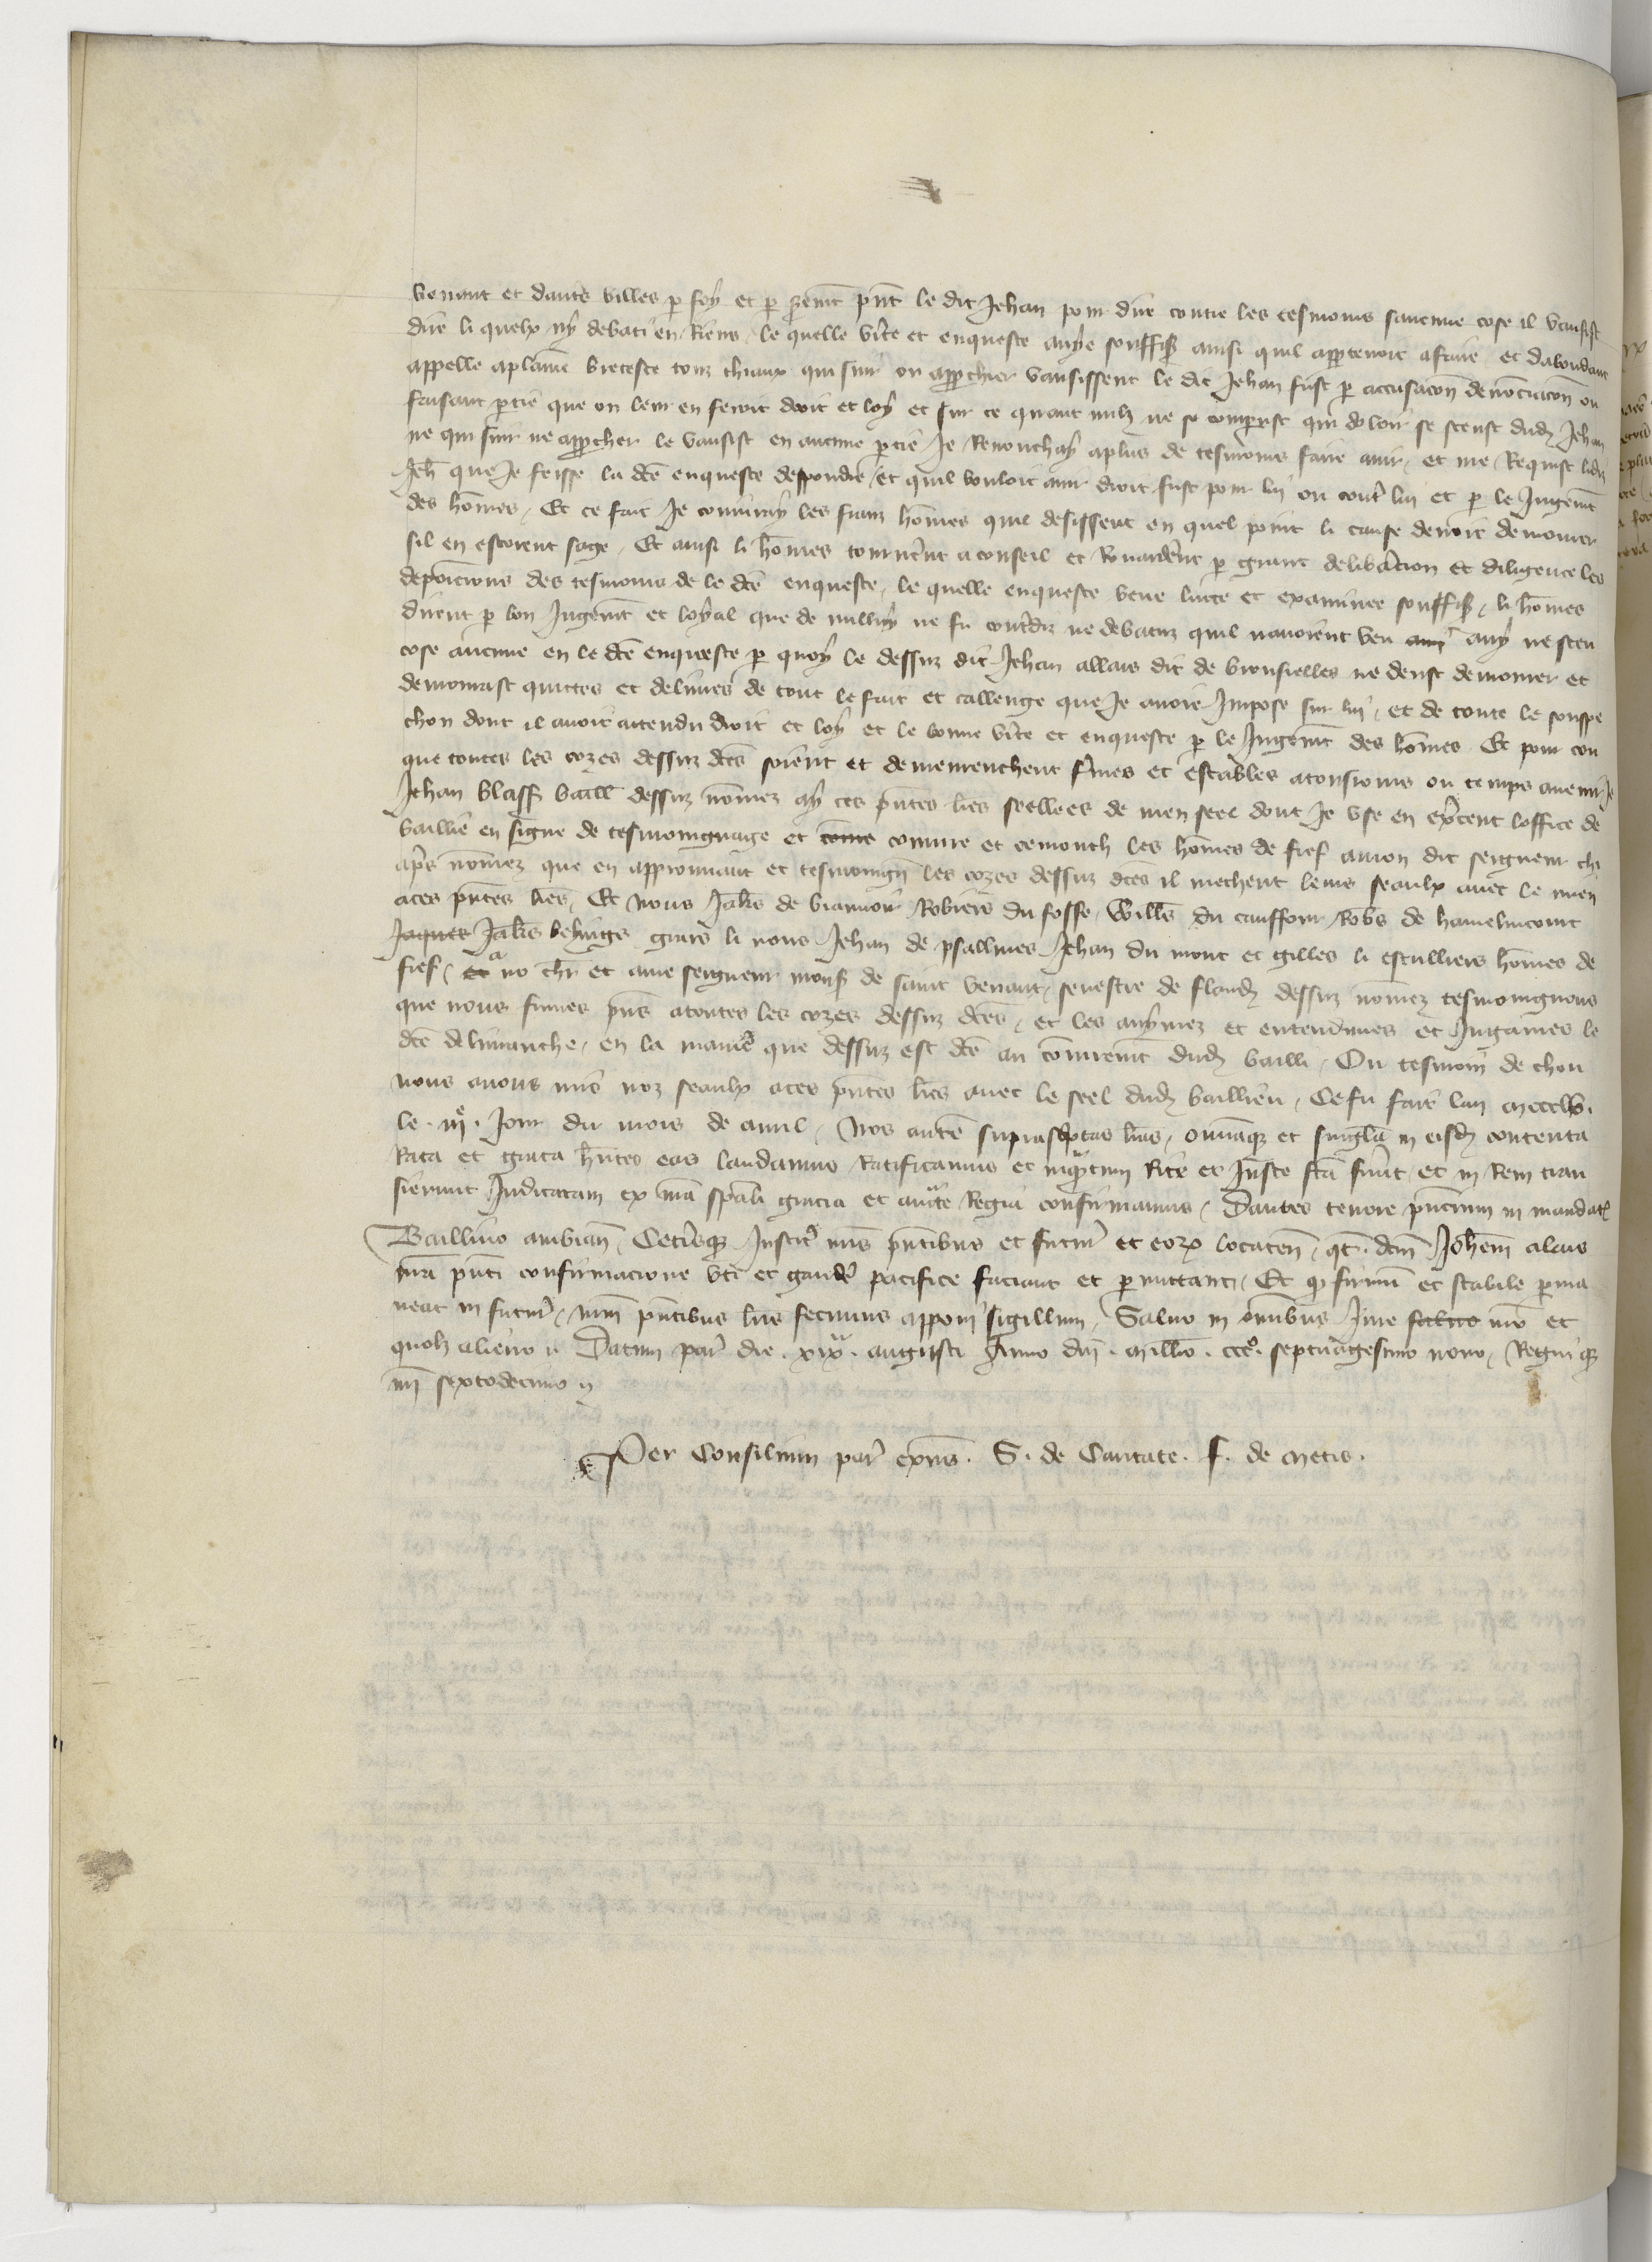 venant et dautres villes p foy et p seremt pnt le dit Jehan pour dire contre les tesmoins saucune cose il vausist
dire li quelx ny debati en Riens / le quelle vite et enqueste auye souffis ainsi quil appertenoit a faire et dabondant
appelle a plaine breteske touz chiaux qui suir ou approchier vausissent le dit Jehan fust p accusacon denonciacon ou
faisant ptie que on leur en feroit droit et loy et sur ce quant nulz ne se comparust qui doloir se sceust dudit Jehan
ne qui suir ne approcher le vausist en aucune ptie Je Renonchay a plus de tesmoins faire auir / et me Requist ledit
Jeh que Je feisse la dce enqueste despondre / et quil vouloit auir droit fust pour luy ou contre lui et p le Jugemt
des homes / Et ce fait Je coniuray les frans homes quil desissent en quel point li cause devoit demourer
sil en estoient sage / Et ainsi li homes tournerent a conseil et Rewarderent p grant deliberacion et diligence les
deposicions des tesmoins de le dce enqueste / le quelle enqueste veue liute et examinee souffis / li homes
dirent p bon Jugemt et loyal que de nulluy ne fu contredit ne debatuz quil nauoient veu auy ne sceu
cose aucune en le dce enqueste p quoy le dessuz dit Jehan allars dit de brousselles ne deust demourer et
demourast quittes et delivres de tout le fait et callenge que Je auoie Impose sur luy / et de toute le souspe
chon dont il auoit attendu droit et loy et le bonne vite et enqueste p le Jugemt des homes Et pour cou
que toutes les cozes dessuz dces soient et demeurechent fermes et estables a tousiours ou temps auenir Je
Jehan blass baill dessuz nomez ay ces pntes lres seellees de men seel dont Je use en expcent loffice de
baillie en signe de tesmoingnaige et come coniure et semonch les homes de fief a mon dit seigneur chi
apres nomez que en approuvant et tesmoingn les cozes dessuz dces il mechent leurs seaulx auec le mien
a ces pntes lres / Et Nous Jakes de Robiers du fosse / Willes du cauffour Robs de hamelincourt
Jaques Jakes li nous Jehan de psallines Jehan du mont et gilles li esculliers homes de
fief / Et a no chr et ame seigneur mons de saint venant / senescre de fland dessuz nomez tesmoingnons
que nous fumes pns a toutes les cozes dessuz dces / et les auymez et entendimes et Jugames le
dce delivranche / en la maniere que dessuz est dce au coniuremt dud bailli / Ou tesmoin de chou
nous auons mis noz seaulx a ces pntes lres auec le seel dud baillieu / Ce fu fait lan mccclv.
le . iije . Jour du mois de auril / Nos autem suprascriptas lras / omniaque et singula in eisdem contenta
Rata et grata hentes eas laudamus Ratificamus et inquantum Rite et Juste fca fuint et in Rem tran
sierunt Judicatam ex nra spali gracia et aucte Regia confirmamus / Dantes tenore pncium in mandat
Baillivo ambian / Ceterisque Justic nris pntibus et futur et eorum locaten / qt . dcm Johem alars
nra pnti confirmacione uti et gaudere pacifice faciant et permittant / Et quod firmu et stabile perma
neat in futur / nrm pntibus lris fecimus apponi sigillum / Salvo in omibus Jure salvo nro et
quolz alieno // Datum par die . xixa . augusti Anno dni . millio . ccco . septuagesimo nono / Regnique
nri sextodecimo //
Per Consilium par exns . S . de Caritate . f . de metis .